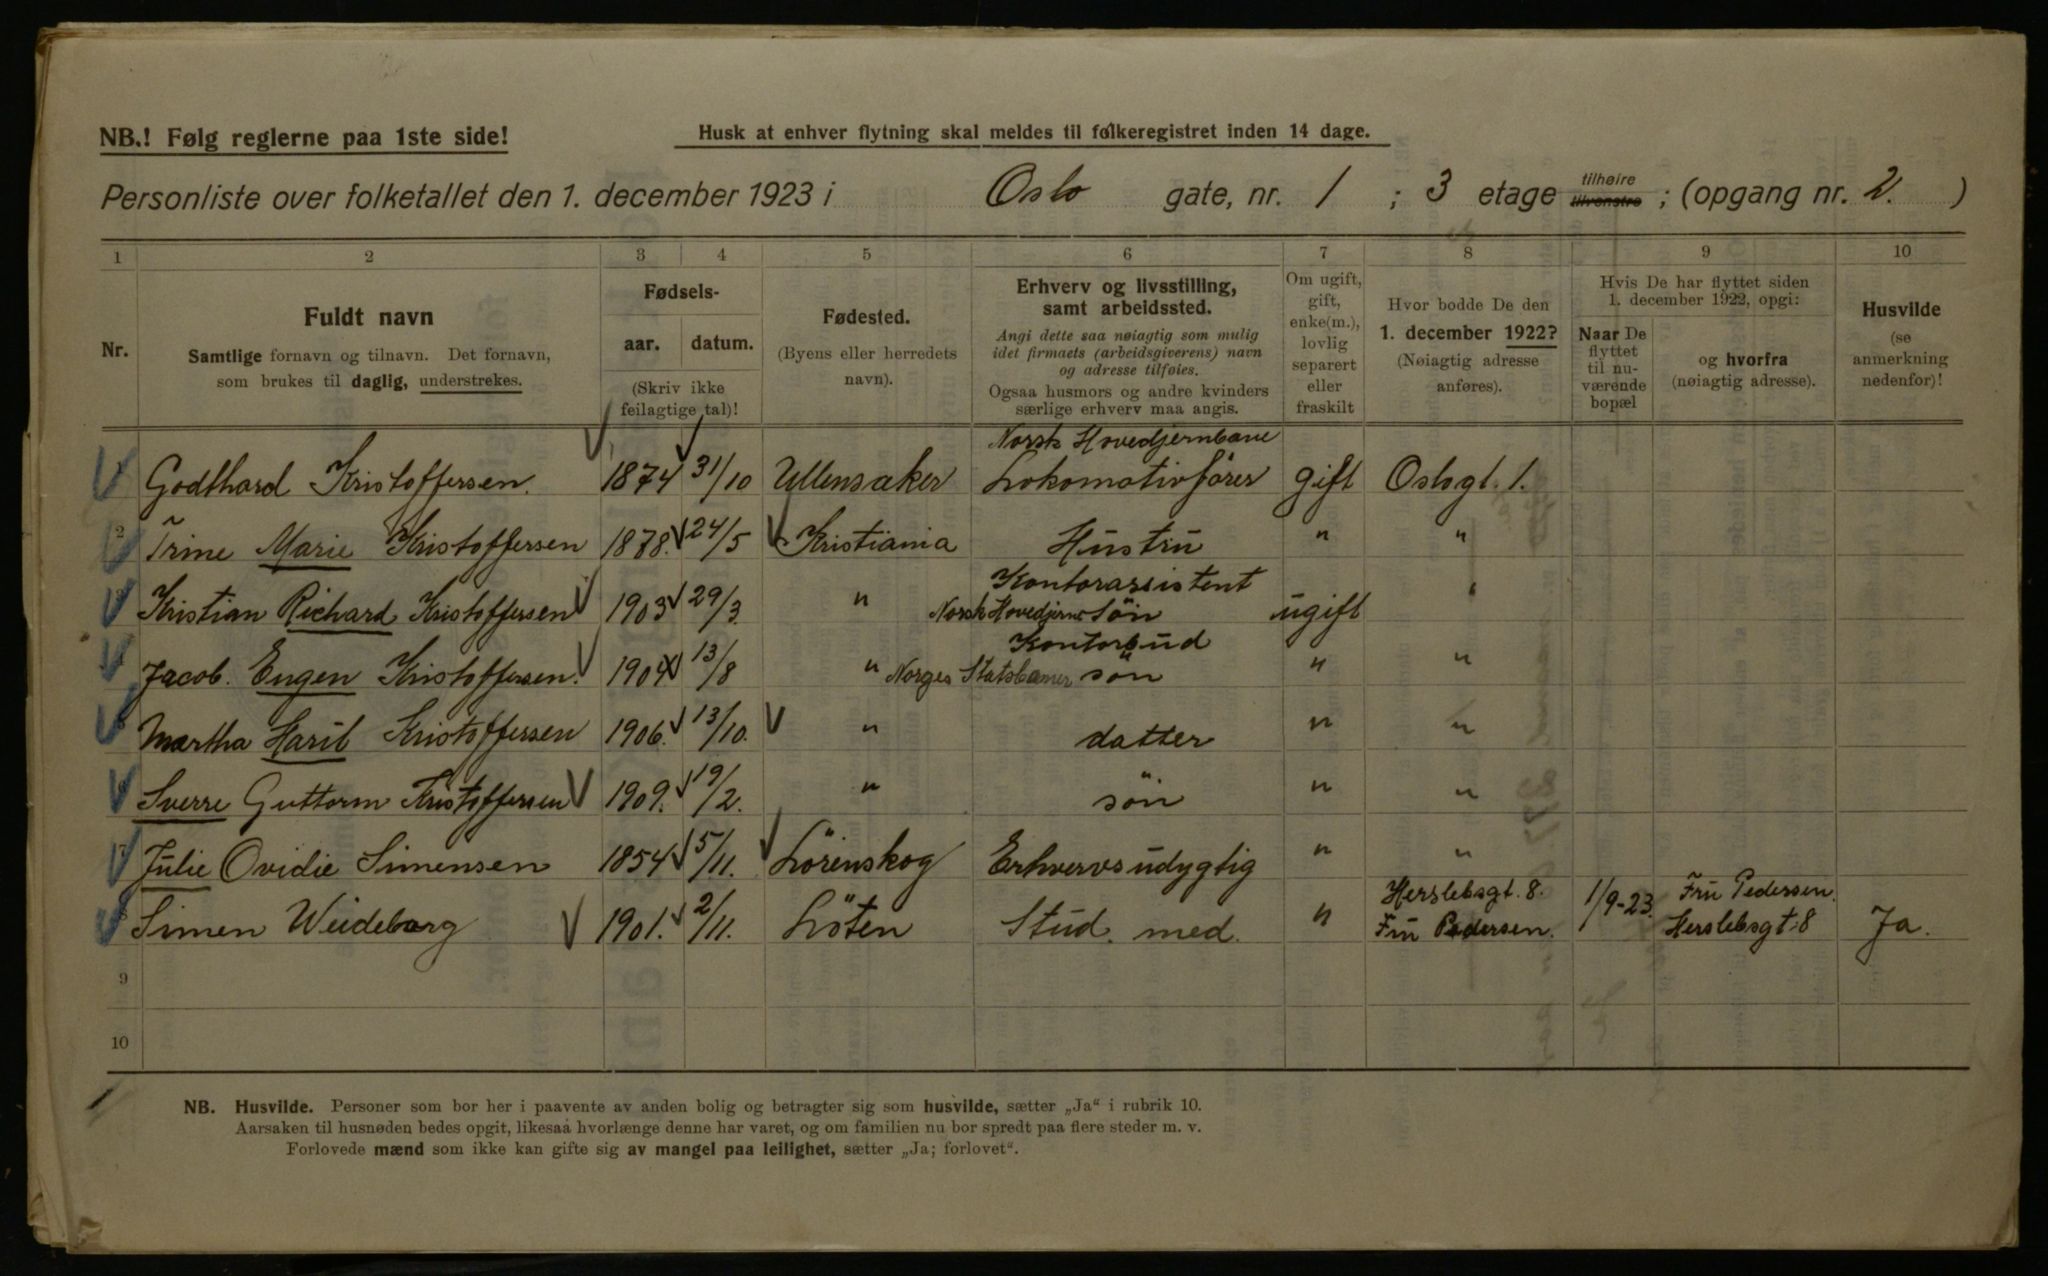 NB.! Følg reglerne paa 1ste side!
Husk at enhver flytning skal meldes til folkeregistret inden 14 dage.
Personliste over folketallet den 1. december 1923 i Oslo gate, nr. 1 ; 3 etage tilhøire tilvenstre ; (opgang nr. 2. )
1 2 3 4 5 6 7 8 9 10
Nr.
Fuldt navn
Samtlige fornavn og tilnavn. Det fornavn,
som brukes til daglig, understrekes.
Fødsels-
aar. datum.
(Skriv ikke
feilagtige tal)!
Fødested.
(Byens eller herredets
navn).
Erhverv og livsstilling,
samt arbeidssted.
Angi dette saa nøiagtig som mulig
idet firmaets (arbeidsgiverens) navn
og adresse tilføies.
Ogsaa husmors og andre kvinders
særlige erhverv maa angis.
Om ugift,
gift,
enke(m.),
lovlig
separert
eller
fraskilt
Hvor bodde De den
1. december 1922?
(Nøiagtig adresse
anføres).
Hvis De har flyttet siden
1. december 1922, opgi:
Naar De
flyttet
til nu-
værende
bopæl
og hvorfra
(nøiagtig adresse).
Husvilde
(se
anmerkning
nedenfor)!
Norsk Hovedjernbane
1 Godthard Kristoffersen. 1874 31/10 Ullensaker Lokomotivförer gift Oslogt. 1.
2 Trine Marie Kristoffersen 1878. 24/5 Kristiania Hustru " "
Kontorassistent
3 Kristian Richard Kristoffersen 1903 29/3 " Norsk Hovedjernb sön ugift "
Kontorbud
4 Jacob. Eugen Kristoffersen. 1904 13/8 " Norges Statsbaner sön " "
5 Martha Haril Kristoffersen 1906. 13/10. " datter " "
6 Sverre Guttorm Kristoffersen 1909. 19/2. " sön " "
7 Julie Ovidie Simensen 1854 5/11. Lörenskog Erhvervsudygtig " "
Herslebsgt. 8. 1/9-23. Fru Pedersen.
8 Simen Weideborg 1901. 2/11. Löten Stud. med. " Fru Pedersen. Herslebsgt. 8 Ja.
9
10
NB. Husvilde. Personer som bor her i paavente av anden bolig og betragter sig som husvilde, sætter „Ja“ i rubrik 10.
Aarsaken til husnøden bedes opgit, likesaa hvorlænge denne har varet, og om familien nu bor spredt paa flere steder m. v.
Forlovede mænd som ikke kan gifte sig av mangel paa leilighet, sætter „Ja; forlovet“.